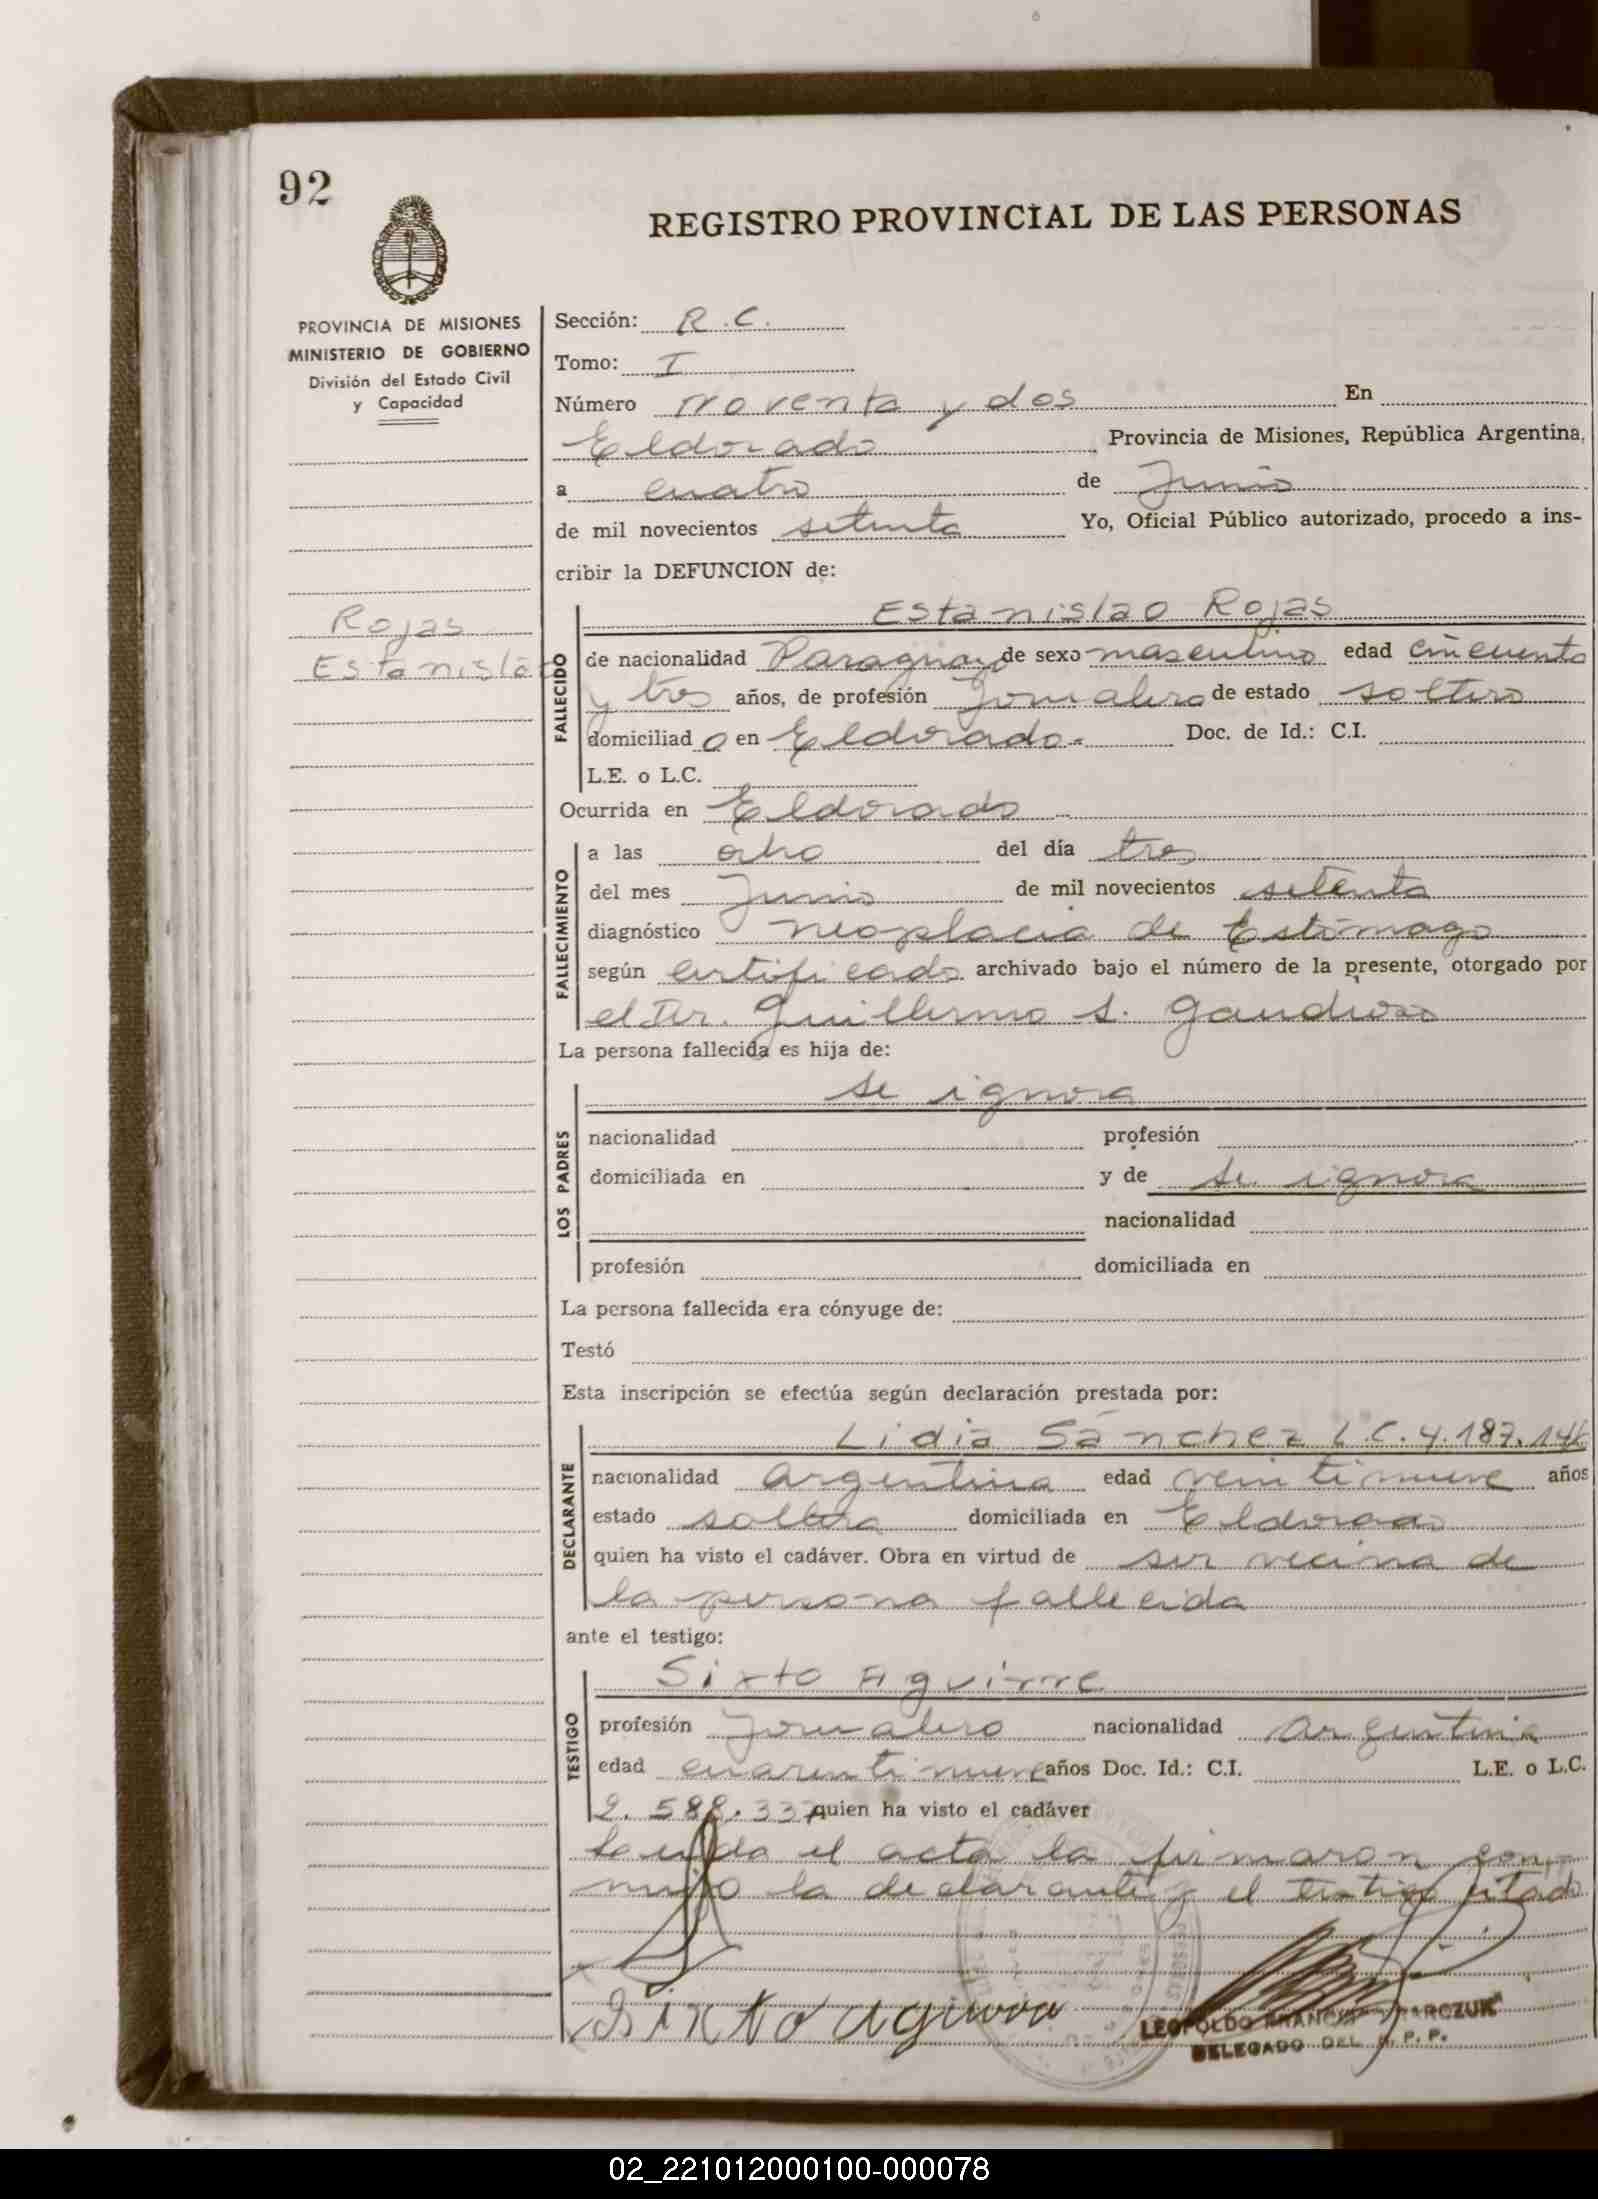 92
REGISTRO PROVINCIAL DE LAS PERSONAS
PROVINCIA DE MISIONES
MINISTERIO DE GOBIERNO
División del Estado Civil
y Capacidad
Rojas
Estanislao
Sección: R.C.
Tomo: I
Número Noventa y dos En
Eldorado Provincia de Misiones, República Argentina,
a cuatro de Junio
de mil novecientos setenta Yo, Oficial Público autorizado, procedo a ins-
cribir la DEFUNCION de:
FALLECIDO
Estanislao Rojas
de nacionalidad Paraguayo de sexo masculino edad cincuenta
y tres años, de profesión Jornalero de estado soltero
domiciliado en Eldorado.- Doc. de Id.: C.I.
L.E. o L.C.
Ocurrida en Eldorado
FALLECIMIENTO
a las ocho del día tres
del mes Junio de mil novecientos setenta
diagnóstico neoplacia de Estómago
según certificado archivado bajo el número de la presente, otorgado por
el Dr. Guillermo S. Gaudioso
La persona fallecida es hija de:
LOS PADRES
se ignora
nacionalidad profesión
domiciliada en y de se ignora
nacionalidad
profesión domiciliada en
La persona fallecida era cónyuge de:
Testó
Esta inscripción se efectúa según declaración prestada por:
DECLARANTE
Lidia Sánchez L.C. 4.187.146
nacionalidad argentina edad veintinueve años
estado soltera domiciliada en Eldorado
quien ha visto el cadáver. Obra en virtud de ser vecina de
la persona fallecida
ante el testigo:
TESTIGO
Sixto Aguirre
profesión Jornalero nacionalidad argentina
edad cuarentinueve años Doc. Id.: C.I. L.E. o L.C.
2.588.337 quien ha visto el cadáver
Leida el acta la firmaron con-
migo la declarante y el testigo citado
Sixto aguirra
LEOPOLDO
DELEGADO DEL R.P.P.
02_221012000100-000078